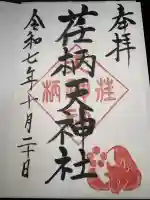 奉拝
荏柄天神社
令和七年十月二十日